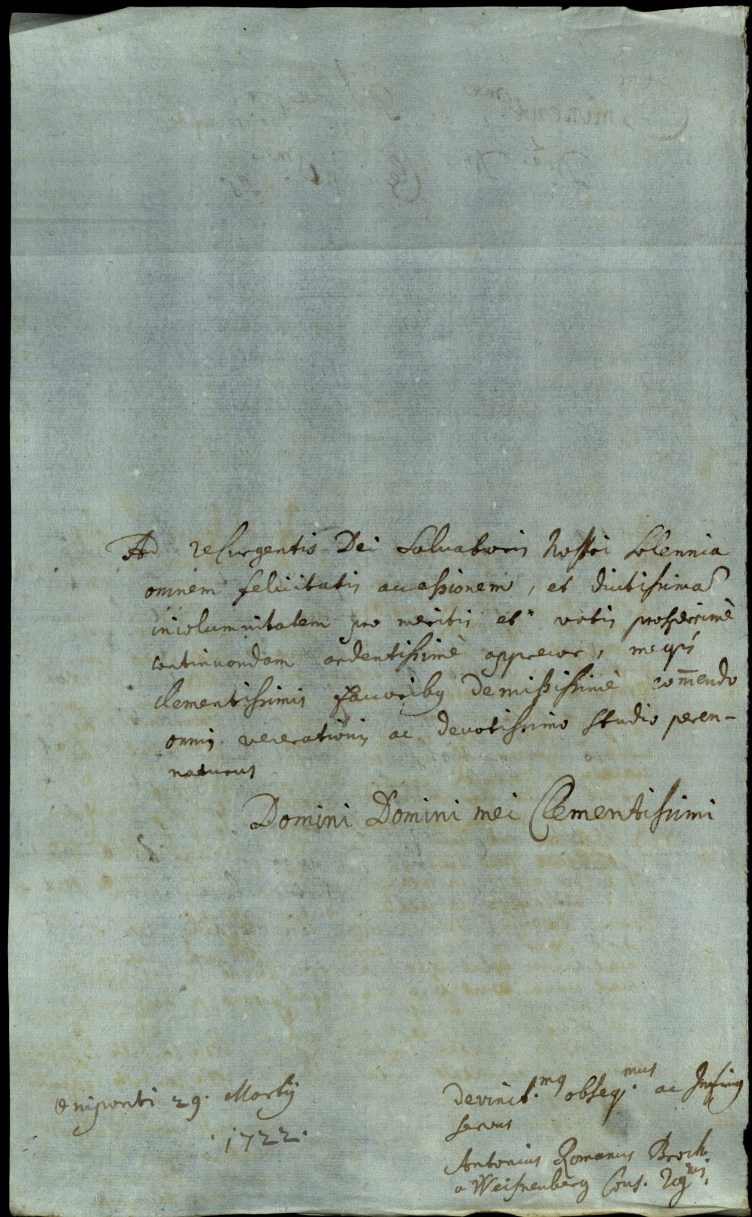 Ad resurgentis Dei Salvatoris Nostri Solennia
omnem felicitatis accessionem, et diutissimam
incolumnitatem pro meritis et votis prosperrimè
continuandam ardentissimè apprecor, meqꝫ
Clementissimis favoribꝰ demississimè com̄endo
omnis venerationis ac devotissimo studio peren-
naturus
Domini Domini mei Clementissimi
Oniponti 29. Martij
1722.
devinct.mꝰ obseq.mus ac Infimꝰ
servus
Antonius Romanus Broch.
a Weissenberg Cons. Reg.